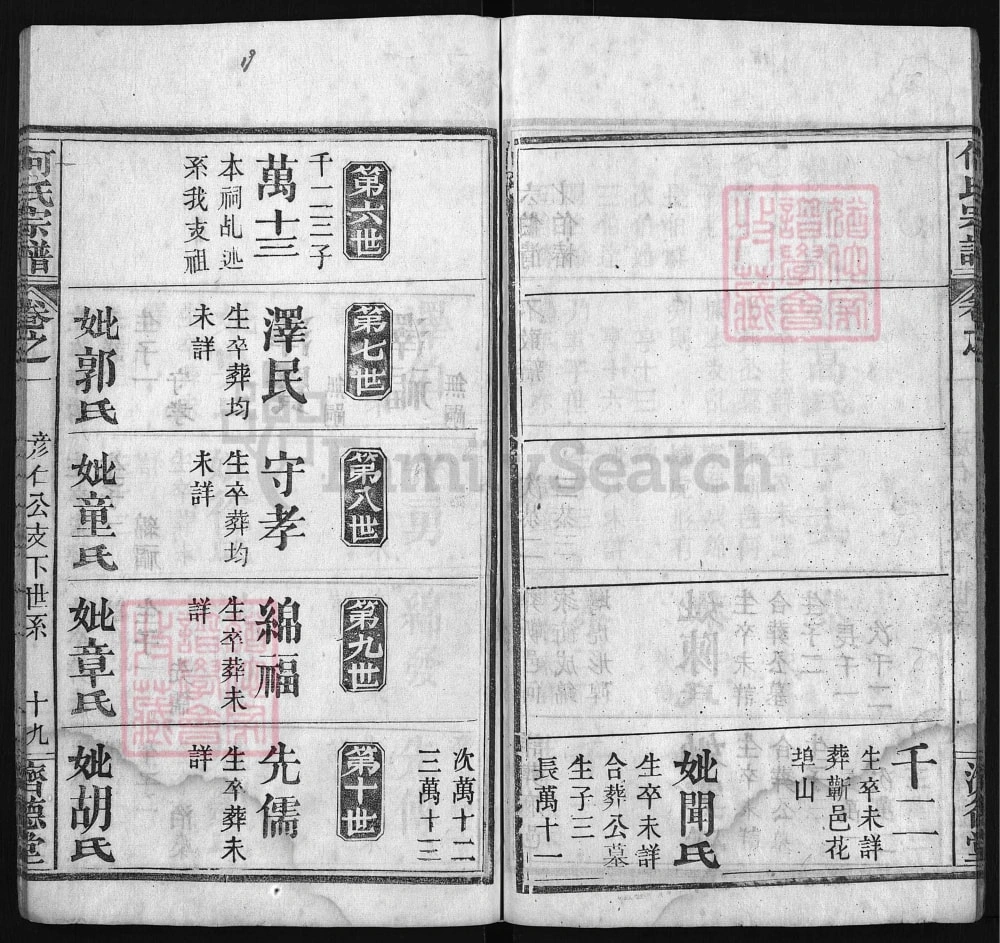 千二
生卒未詳
葬蘄邑花
埠山
妣聞氏
生卒未詳
合葬公墓
生子三
長萬十一
次萬十二
三萬十三
第六世
萬十三
千二三子
本祠乩沠
系我支祖
第七世
澤民
生卒葬均
未詳
妣郭氏
第八世
守孝
生卒葬均
未詳
妣童氏
第九世
綿福
生卒葬未
詳
妣章氏
第十世
先儒
生卒葬未
詳
妣胡氏
何氏宗譜
卷之一
彦仁公支下世系
十九
濟德堂
FamilySearch